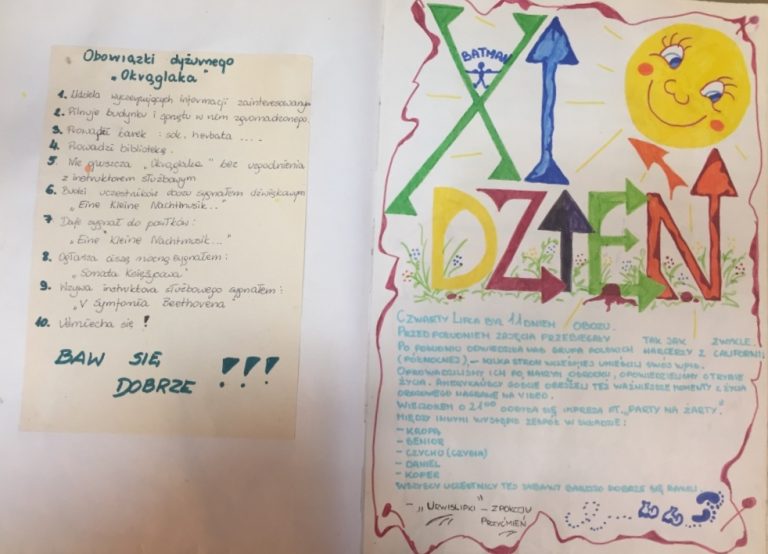 Obowiązki dyżurnego
"Okrąglaka"
1. Udziela wyczerpujących informacji zainteresowanym
2. Pilnuje budynku i sprzętu w nim zgromadzonego.
3. Prowadzi barek : sok, herbata ....
4. Prowadzi bibliotekę.
5. Nie opuszcza „Okrąglaka" bez uzgodnienia
z instruktorem służbowym
6. Budzi uczestników obozu sygnałem dźwiękowym
„Eine Kleine Nachtmusik..."
7. Daje sygnał do posiłków:
„Eine Kleine Nachtmusik..."
8. Ogłasza ciszę nocną sygnałem:
„Sonata Księżycowa"
9. Wzywa instruktora służbowego sygnałem:
„V Symfonia Beethovena"
10. Uśmiecha się !
BAW SIĘ
DOBRZE !!!
XI
BATMAN
DZIEŃ
CZWARTY LIPCA BYŁ 11 DNIEM OBOZU.
PRZED POŁUDNIEM ZAJĘCIA PRZEBIEGAŁY TAK JAK ZWYKLE.
PO POŁUDNIU ODWIEDZIŁA NAS GRUPA POLSKICH HARCERZY Z CALIFORNII
(PÓŁNOCNEJ), – KILKA STRON WCZEŚNIEJ UMIEŚCILI SWÓJ WPIS.
OPROWADZILIŚMY ICH PO NASZYM OŚRODKU, OPOWIEDZIELIŚMY O TRYBIE
ŻYCIA. AMERYKAŃSCY GOŚCIE OBEJRZELI TEŻ WAŻNIEJSZE MOMENTY Z ŻYCIA
OBOZOWEGO NAGRANE NA VIDEO.
WIECZOREM O 21⁰⁰ ODBYŁA SIĘ IMPREZA PT. „PARTY NA ŻARTY".
MIĘDZY INNYMI WYSTĄPIŁ ZESPÓŁ W SKŁADZIE:
– KROPA
– SENIOR
– CZYCHO (CZYSIA)
– DANIEL
– KOPER
WSZYSCY UCZESTNICY TEJ ZABAWY BARDZO DOBRZE SIĘ BAWILI.
– „URWISLIPKI" – Z POKOJU
PRZYCMIEŃ